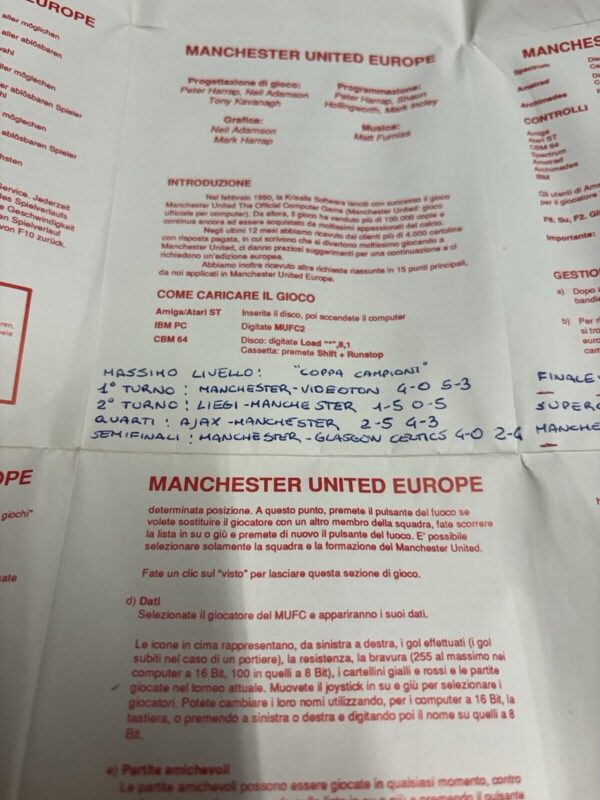 EUROPE
aller möglichen
aller ablösbaren
aller möglechen
aller ablösbaren Spieler
möglechen
ablösbaren Spieler
Service. Jederzeit
des Spielverlaufs
Geschwindigkeit
Spielverlauf
von F10 zurück.
MANCHESTER UNITED EUROPE
Progettazione di gioco:
Peter Harrap, Neil Adamson
Tony Kavanagh
Programmazione:
Peter Harrap, Shaun
Hollingworth, Mark Incley
Grafica:
Neil Adamson
Mark Harrap
Musica:
Matt Furniss
INTRODUZIONE
Nel febbraio 1990, la Krisalis Software lanciò con successo il gioco
Manchester United The Official Computer Game (Manchester United: gioco
ufficiale per computer). Da allora, il gioco ha venduto più di 100.000 copie e
continua ancora ad essere acquistato da moltissimi appassionati del calcio.
Negli ultimi 12 mesi abbiamo ricevuto dai clienti più di 4.000 cartoline
con risposta pagata, in cui scrivono che si divertono moltissimo giocando a
Manchester United, ci danno preziosi suggerimenti per una continuazione e ci
richiedono un'edizione europea.
Abbiamo inoltre ricevuto altre richieste riassunte in 15 punti principali,
da noi applicati in Manchester United Europe.
COME CARICARE IL GIOCO
Amiga/Atari ST Inserite il disco, poi accendete il computer
IBM PC Digitate MUFC2
CBM 64 Disco: digitate Load "*",8,1
Cassetta: premete Shift + Runstop
MASSIMO LIVELLO: "COPPA CAMPIONI"
1° TURNO: MANCHESTER-VIDEOTON 4-0 5-3
2° TURNO: LIEGI-MANCHESTER 1-5 0-5
QUARTI: AJAX-MANCHESTER 2-5 4-3
SEMIFINALI: MANCHESTER-GLASGOW CELTICS 4-0 2-4
MANCHES
Spectrum
Amstrad
Archimedes
CONTROLLI
Amiga
Atari ST
CBM 64
Spectrum
Amstrad
Archimedes
IBM
Gli utenti di Ams
per il giocatore
F8, Su, F2, Gi
Importante:
GESTIO
a) Dopo
bandie
b) Per
si tro
euro
cam
FINALE
SUPERC
MANCHE
OPE
giochi"
MANCHESTER UNITED EUROPE
determinata posizione. A questo punto, premete il pulsante del fuoco se
volete sostituire il giocatore con un altro membro della squadra, fate scorrere
la lista in su o giu e premete di nuovo il pulsante del fuoco. E' possibile
selezionare solamente la squadra e la formazione del Manchester United.
Fate un clic sul "visto" per lasciare questa sezione di gioco.
d) Dati
Selezionate il giocatore del MUFC e appariranno i suoi dati.
Le icone in cima rappresentano, da sinistra a destra, i gol effettuati (i gol
subiti nel caso di un portiere), la resistenza, la bravura (255 al massimo nei
computer a 16 Bit, 100 in quelli a 8 Bit), i cartellini gialli e rossi e le partite
giocate nel torneo attuale. Muovete il joystick in su e giù per selezionare i
giocatori. Potete cambiare i loro nomi utilizzando, per i computer a 16 Bit, la
tastiera, o premendo a sinistra o destra e digitando poi il nome su quelli a 8
Bit.
e) Partite amichevoli
Le partite amichevoli possono essere giocate in qualsiasi momento, contro